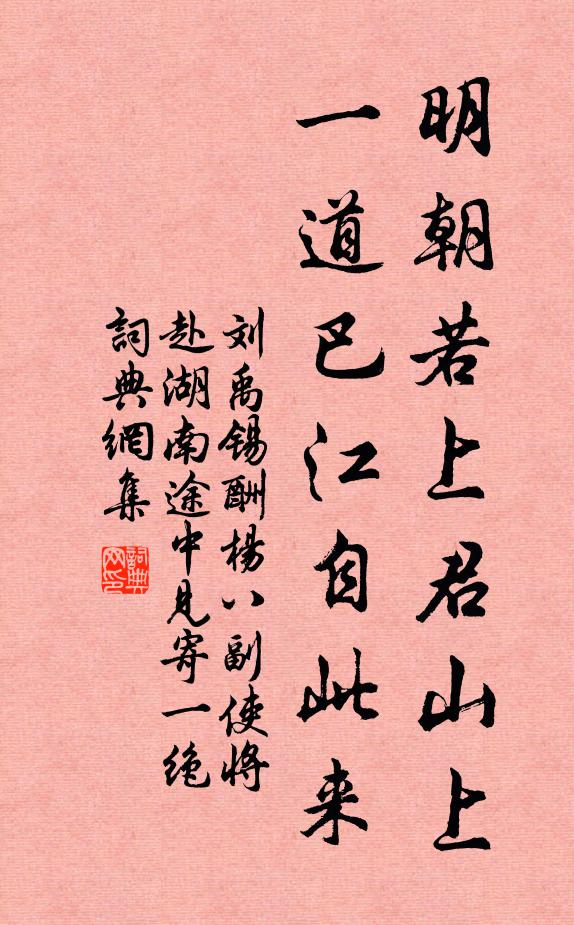 明朝若上君山上
一道巴江自此来
刘禹锡酬杨八副使将
赴湖南途中见寄一绝
词典網集
詞典
网印